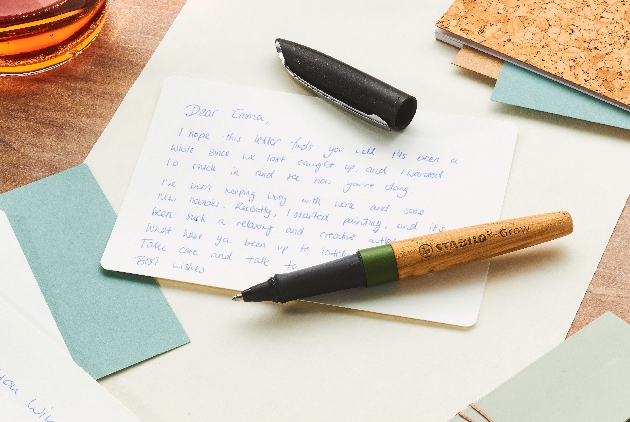 Dear Emma,
I hope this letter finds you well It's been a
while since we last caught up, and I wanted
to check in and see how you're doing
I've been keeping busy with work and some
new hobbies. Recently, I started painting, and it's
been such a relaxing and creative outlet
What have ya been up to lately
Take care and talk to
Best wishes
STABILO Grow
you